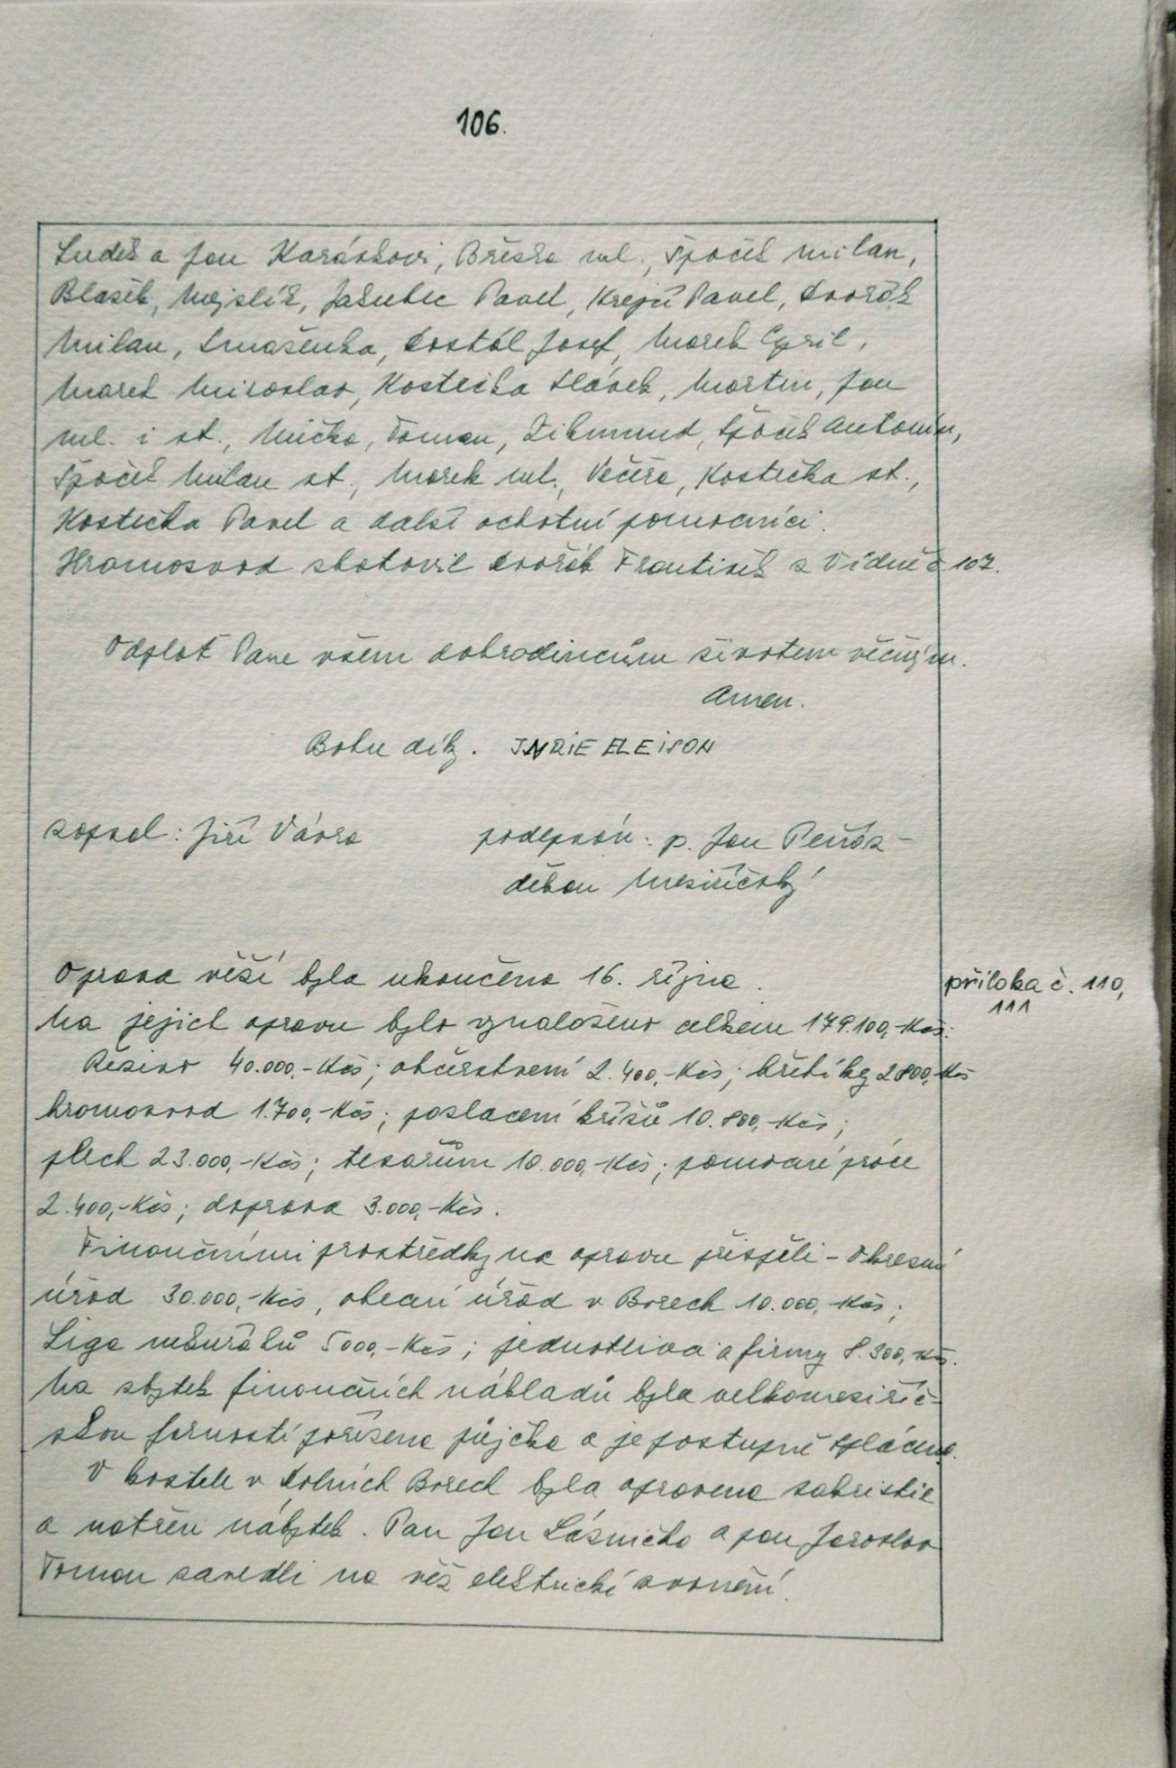 106.
Luděk a Jan Karáskovi, Březka ml., Špaček Milan,
Blažek, Mejzlík, Jakubec Pavel, Krejčí Pavel, Dvořák
Milan, Smaženka, Dostál Josef, Marek Cyril,
Marek Miroslav, Kostečka Slávek, Martin, Jan
ml. i st., Mička, Toman, Zikmund, Špaček Antonín,
Špaček Milan st., Marek ml., Večeřa, Kostečka st.,
Kostečka Pavel a další ochotní pomocníci.
Hromosvod zhotovil Dvořák František z Vídně č. 107.
Odplať Pane všem dobrodincům životem věčným.
Amen.
Bohu díky. ELEISON
zapsal: Jiří Vávra podepsán: p. Jan Peňáz –
děkan Meziříčský
Oprava věží byla ukončena 16. října.
příloha č. 110,
111
Na jejich opravu bylo vynaloženo celkem 179.100,-Kčs:
Řezivo 40.000,-Kčs; občerstvení 2.400,-Kčs; hřebíky 2800,-Kčs
hromosvod 1.700,-Kčs; pozlacení křížů 10.800,-Kčs;
plech 23.000,-Kčs; tesařům 10.000,-Kčs; pomocné práce
2.400,-Kčs; doprava 3.000,-Kčs.
Finančními prostředky na opravu přispěli – Okresní
úřad 30.000,-Kčs, obecní úřad v Borech 10.000,-Kčs;
Liga 5000,-Kčs; jednotlivci a firmy 8.300,-Kčs.
Na zbytek finančních nákladů byla velkomeziříč-
skou farností pořízena půjčka a je postupně splácena.
V kostele v Dolních Borech byla opravena sakristie
a natřen nábytek. Pan Jan Lásnička a pan Jaroslav
Toman zavedli na věž elektrické zvonění.